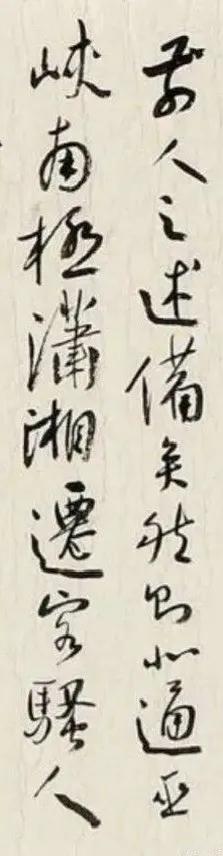 前人之述備矣然則北通巫
峽南極瀟湘遷客騷人